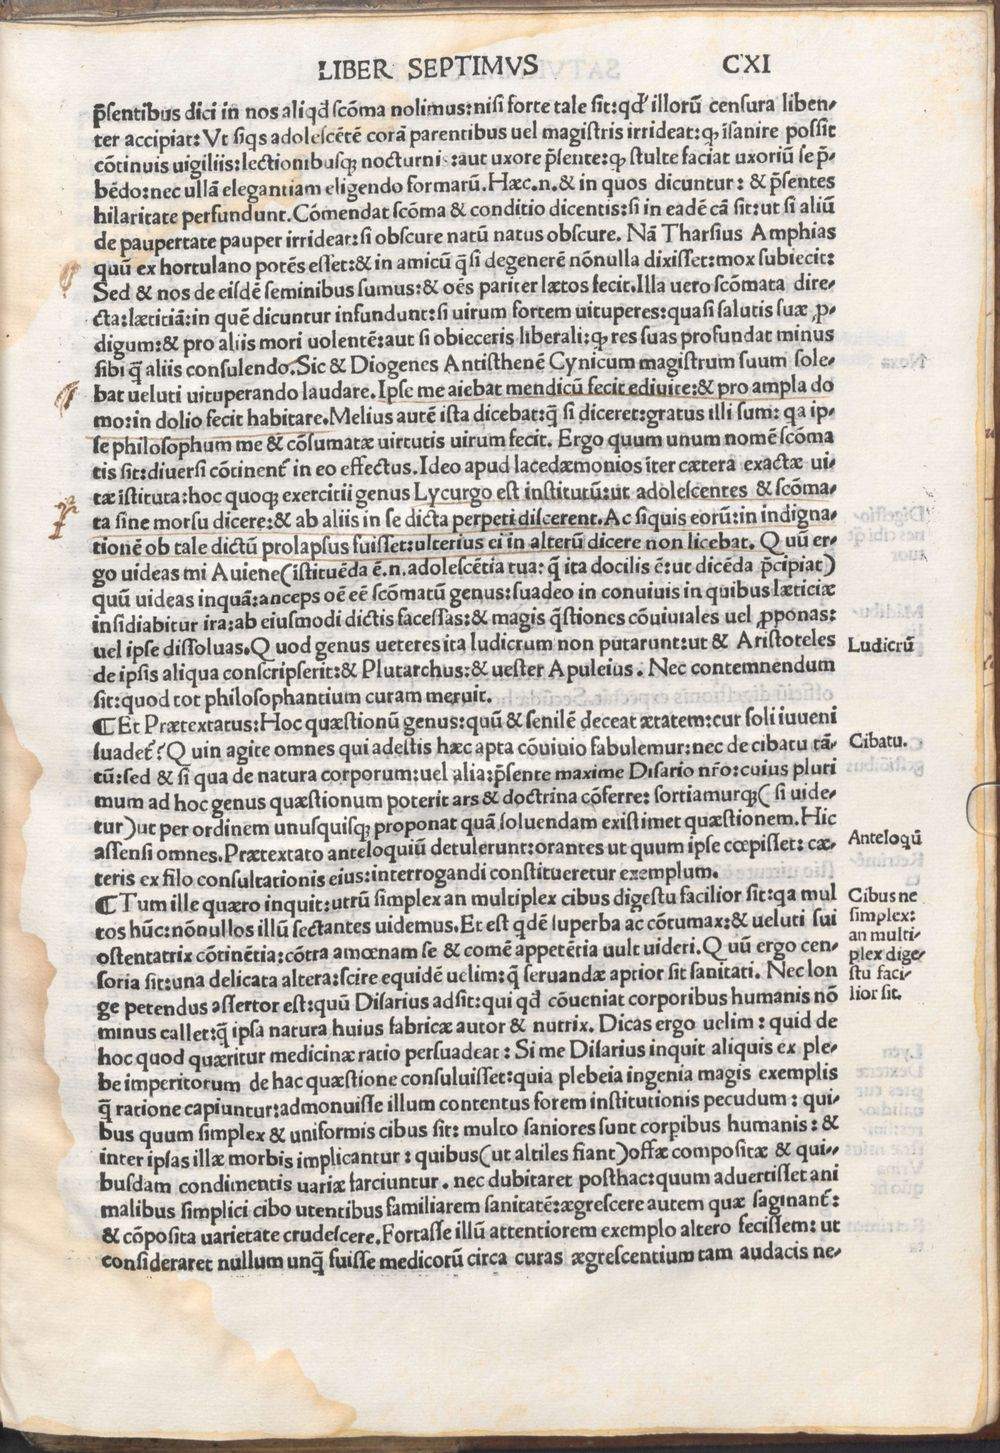 LIBER SEPTIMVS CXI
p̃sentibus dici in nos aliqd̕ scõma nolimus:nisi forte tale sit:qd̕ illorũ censura liben⸗
ter accipiat: Vt siqs adolescẽtẽ corã parentibus uel magistris irrideat:ꝙ ĩsanire possit
cõtinuis uigiliis:lectionibusqꝫ nocturnis:aut uxore p̃sente:ꝙ stulte faciat uxoriũ se p̃⸗
bẽdo:nec ullã elegantiam eligendo formarũ.Hæc.n.& in quos dicuntur: & p̃sentes
hilaritate perfundunt.Cõmendat scõma & conditio dicentis:si in eadẽ cã sit:ut si aliũ
de paupertate pauper irrideat:si obscure natũ natus obscure. Nã Tharsius Amphias
quũ ex hortulano potẽs esset:& in amicũ q̃si degenerẽ nõnulla dixisset:mox subiecit:
Sed & nos de eisdẽ seminibus sumus:& oẽs pariter lætos fecit.Illa uero scõmata dire⸗
cta:lætitiã:in quẽ dicuntur infundunt:si uirum fortem uituperes:quasi salutis suæ ꝓ⸗
digum:& pro aliis mori uolentẽ:aut si obieceris liberali:ꝙ res suas profundat minus
sibi q̃ aliis consulendo.Sic & Diogenes Antisthenẽ Cynicum magistrum suum sole⸗
bat ueluti uituperando laudare.Ipse me aiebat mendicũ fecit ediuite:& pro ampla do
mo:in dolio fecit habitare.Melius autẽ ista dicebat:q̃ si diceret:gratus illi sum: qa ip⸗
se philosophum me & cõsumatæ uirtutis uirum fecit. Ergo quum unum nomẽ scõma
tis sit:diuersi cõtinent̃ in eo effectus.Ideo apud lacedæmonios ĩter cætera exactæ ui⸗
tæ ĩstituta:hoc quoqꝫ exercitii genus Lycurgo est institutũ:ut adolescentes & scõma⸗
ta sine morsu dicere:& ab aliis in se dicta perpeti discerent.Ac siquis eorũ:in indigna⸗
tionẽ ob tale dictũ prolapsus fuisset:ulterius ei in alterũ dicere non licebat. Quũ er⸗
go uideas mi Auiene(ĩstituẽda ẽ.n.adolescẽtia tua: q̃ ita docilis ẽ:ut dicẽda p̃cipiat)
quũ uideas inquã:anceps oẽ eẽ scõmatũ genus:suadeo in conuiuis in quibus læticiæ
insidiabitur ira:ab eiusmodi dictis facessas:& magis q̃stiones cõuiuiales uel ꝓponas:
uel ipse dissoluas.Quod genus ueteres ita ludicrum non putarunt:ut & Aristoteles
de ipsis aliqua conscripserit:& Plutarchus:& uester Apuleius. Nec contemnendum
sit:quod tot philosophantium curam meruit.
Ludicrũ
¶Et Prætextatus:Hoc quæstionũ genus:quũ & senilẽ deceat ætatem:cur soli iuueni
suadet̃?Quin agite omnes qui adestis hæc apta cõuiuio fabulemur:nec de cibatu tã⸗
tũ:sed & si qua de natura corporum:uel alia:p̃sente maxime Disario nr̃o:cuius pluri
mum ad hoc genus quæstionum poterit ars & doctrina cõferre: sortiamurqꝫ( si uide⸗
tur)ut per ordinem unusquisqꝫ proponat quã soluendam existimet quæstionem.Hic
assensi omnes.Prætextato anteloquiũ detulerunt:orantes ut quum ipse cœpisset: cæ⸗
teris ex filo consultationis eius:interrogandi constitueretur exemplum.
Cibatu.
Anteloqũ
¶Tum ille quæro inquit:utrũ simplex an multiplex cibus digestu facilior sit:qa mul
tos hũc:nõnullos illũ sectantes uidemus.Et est qdẽ superba ac cõtumax:& ueluti sui
ostentatrix cõtinẽtia:cõtra amœnam se & comẽ appetẽtia uult uideri.Quũ ergo cen⸗
soria sit:una delicata altera:scire equidẽ uelim:q̃ seruandæ aptior sit sanitati. Nec lon
ge petendus assertor est:quũ Disarius adsit:qui qd̕ cõueniat corporibus humanis nõ
minus callet:q̃ ipsa natura huius fabricæ autor & nutrix. Dicas ergo uelim: quid de
hoc quod quæritur medicinæ ratio persuadeat: Si me Disarius inquit aliquis ex ple⸗
be imperitorum de hac quæstione consuluisset:quia plebeia ingenia magis exemplis
q̃ ratione capiuntur:admonuisse illum contentus forem institutionis pecudum: qui⸗
bus quum simplex & uniformis cibus sit: multo saniores sunt corpibus humanis: &
inter ipsas illæ morbis implicantur: quibus(ut altiles fiant)offæ compositæ & qui⸗
busdam condimentis uariæ farciuntur. nec dubitaret posthac:quum aduertisset ani
malibus simplici cibo utentibus familiarem sanitatẽ:ægrescere autem quæ saginant̃:
& cõposita uarietate crudescere.Fortasse illũ attentiorem exemplo altero fecissem: ut
consideraret nullum unq̃ fuisse medicorũ circa curas ægrescentium tam audacis ne⸗
Cibus ne
simplex:
an multi⸗
plex dige⸗
stu faci⸗
lior sit.